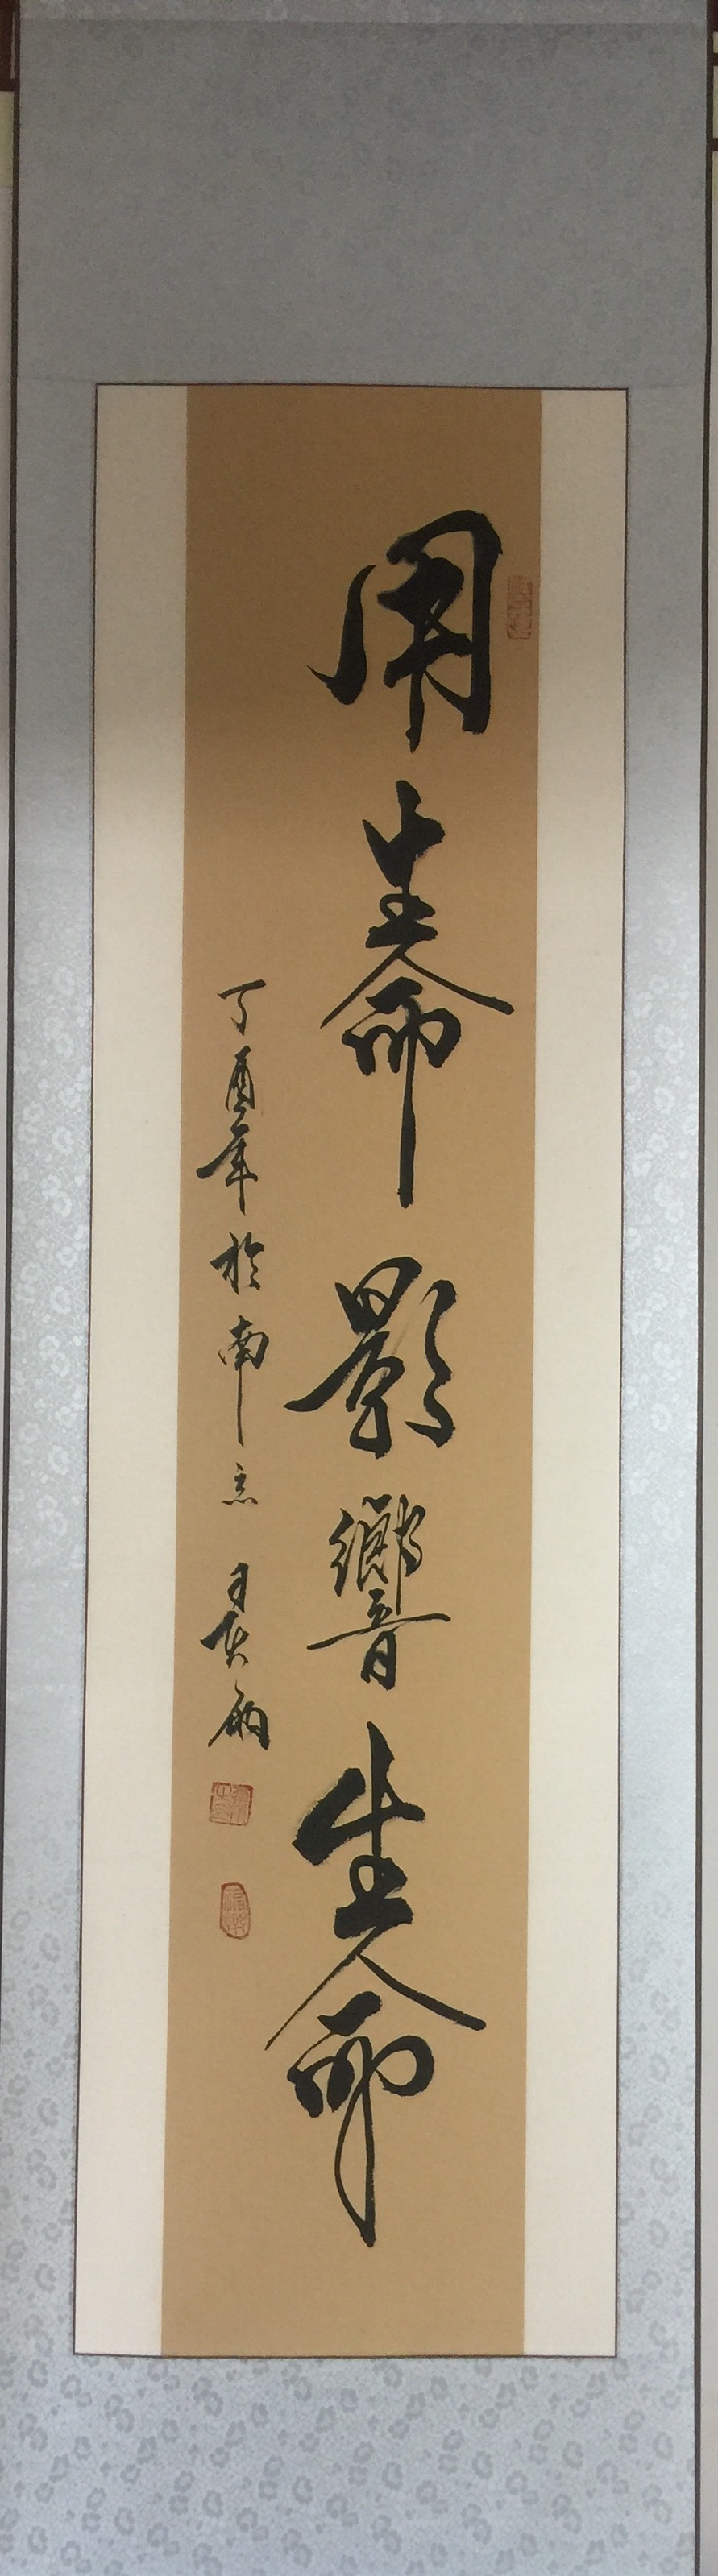 用生命影響生命
丁酉年於南京